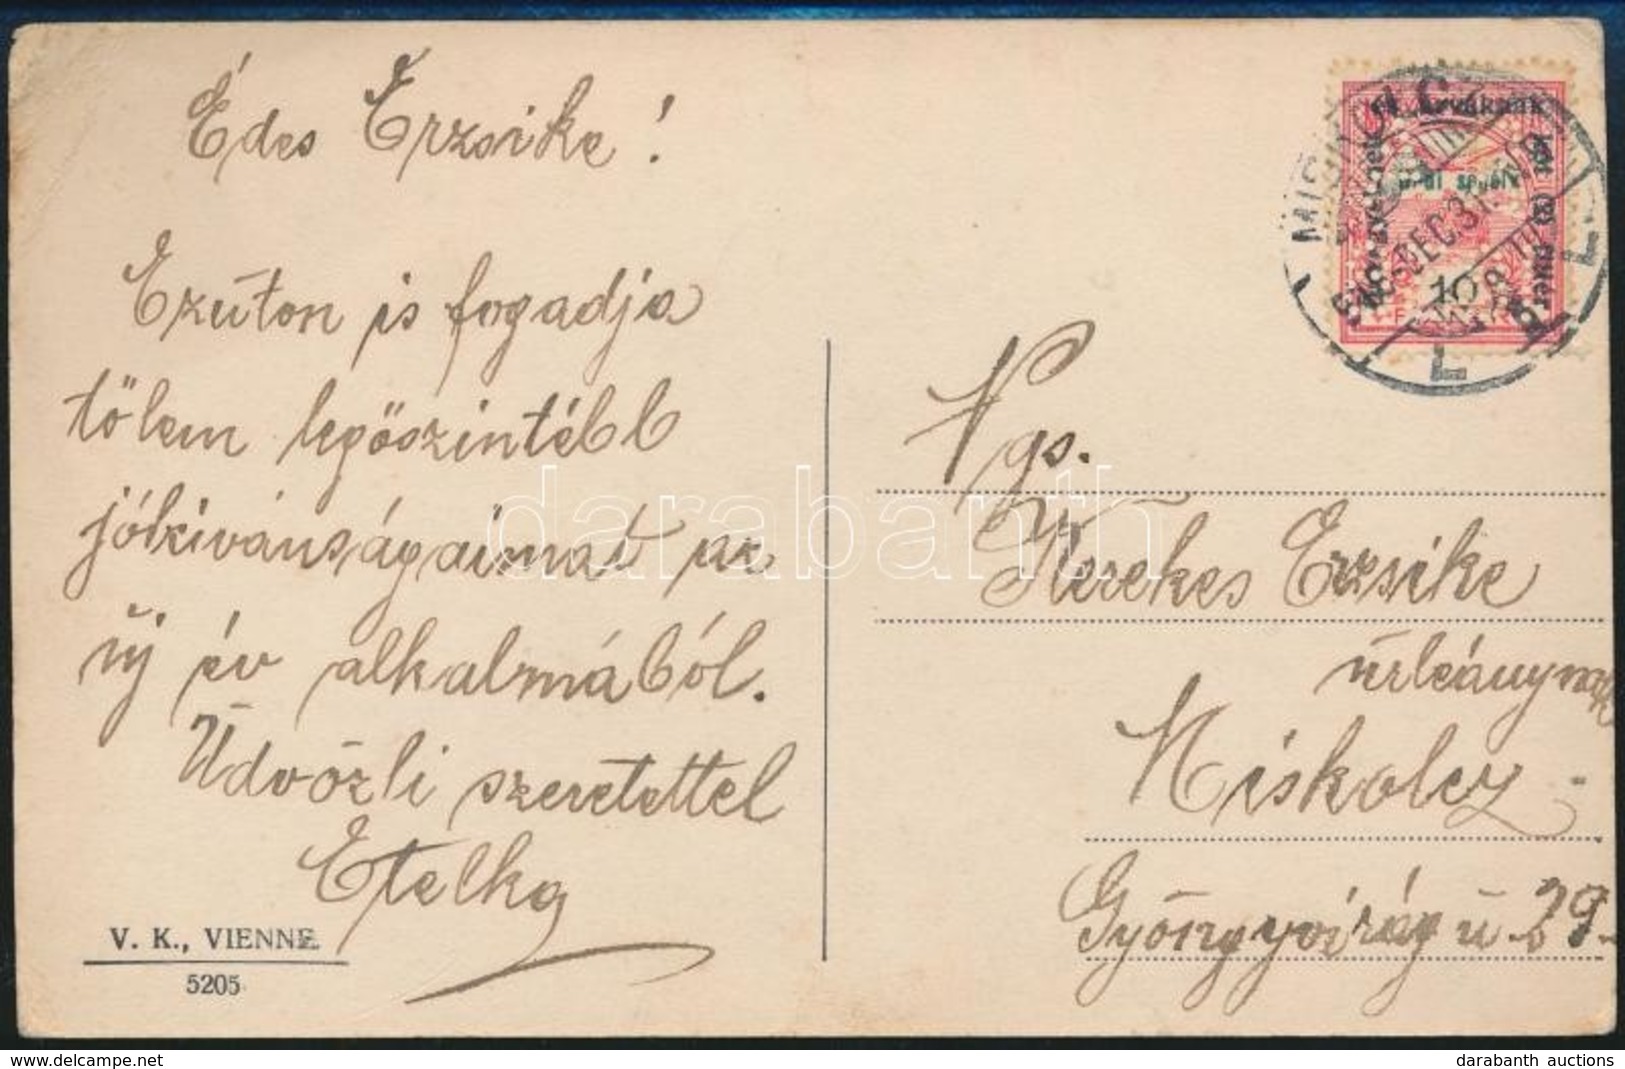 Édes Erzsike!
Ezúton is fogadja
tőlem legőszintébb
jókivánságaimat az
új év alkalmából.
Üdvözli szeretettel
Etelka
V. K., VIENNE
5205
Ngs.
Kerekes Erzsike
úrleánynak
Miskolcz
Gyöngyvirág u 29.
MISKOLCZ
DEC. 31.
10
darabanth
www.darabanth.com
darabanth auctions